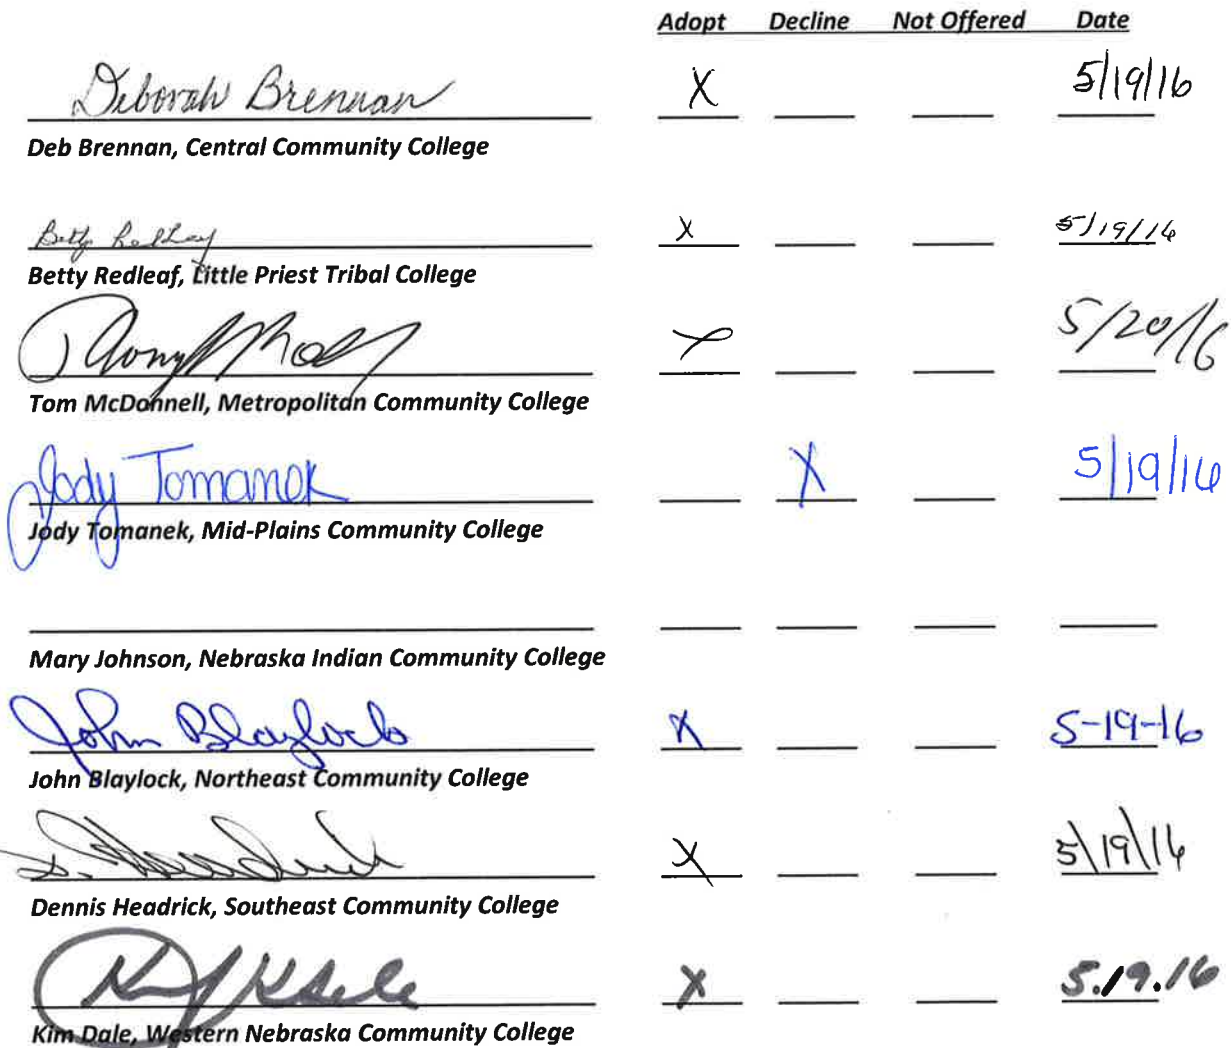 Adopt Decline Not Offered Date
Deborah Brennan X 5/19/16
Deb Brennan, Central Community College
Betty X 5/19/16
Betty Redleaf, Little Priest Tribal College
X 5/20/16
Tom McDonnell, Metropolitan Community College
Jody Tomanek X 5/19/16
Jody Tomanek, Mid-Plains Community College
Mary Johnson, Nebraska Indian Community College
John Blaylock X 5-19-16
John Blaylock, Northeast Community College
D. Headrick X 5\19\16
Dennis Headrick, Southeast Community College
X 5.19.16
Kim Dale, Western Nebraska Community College